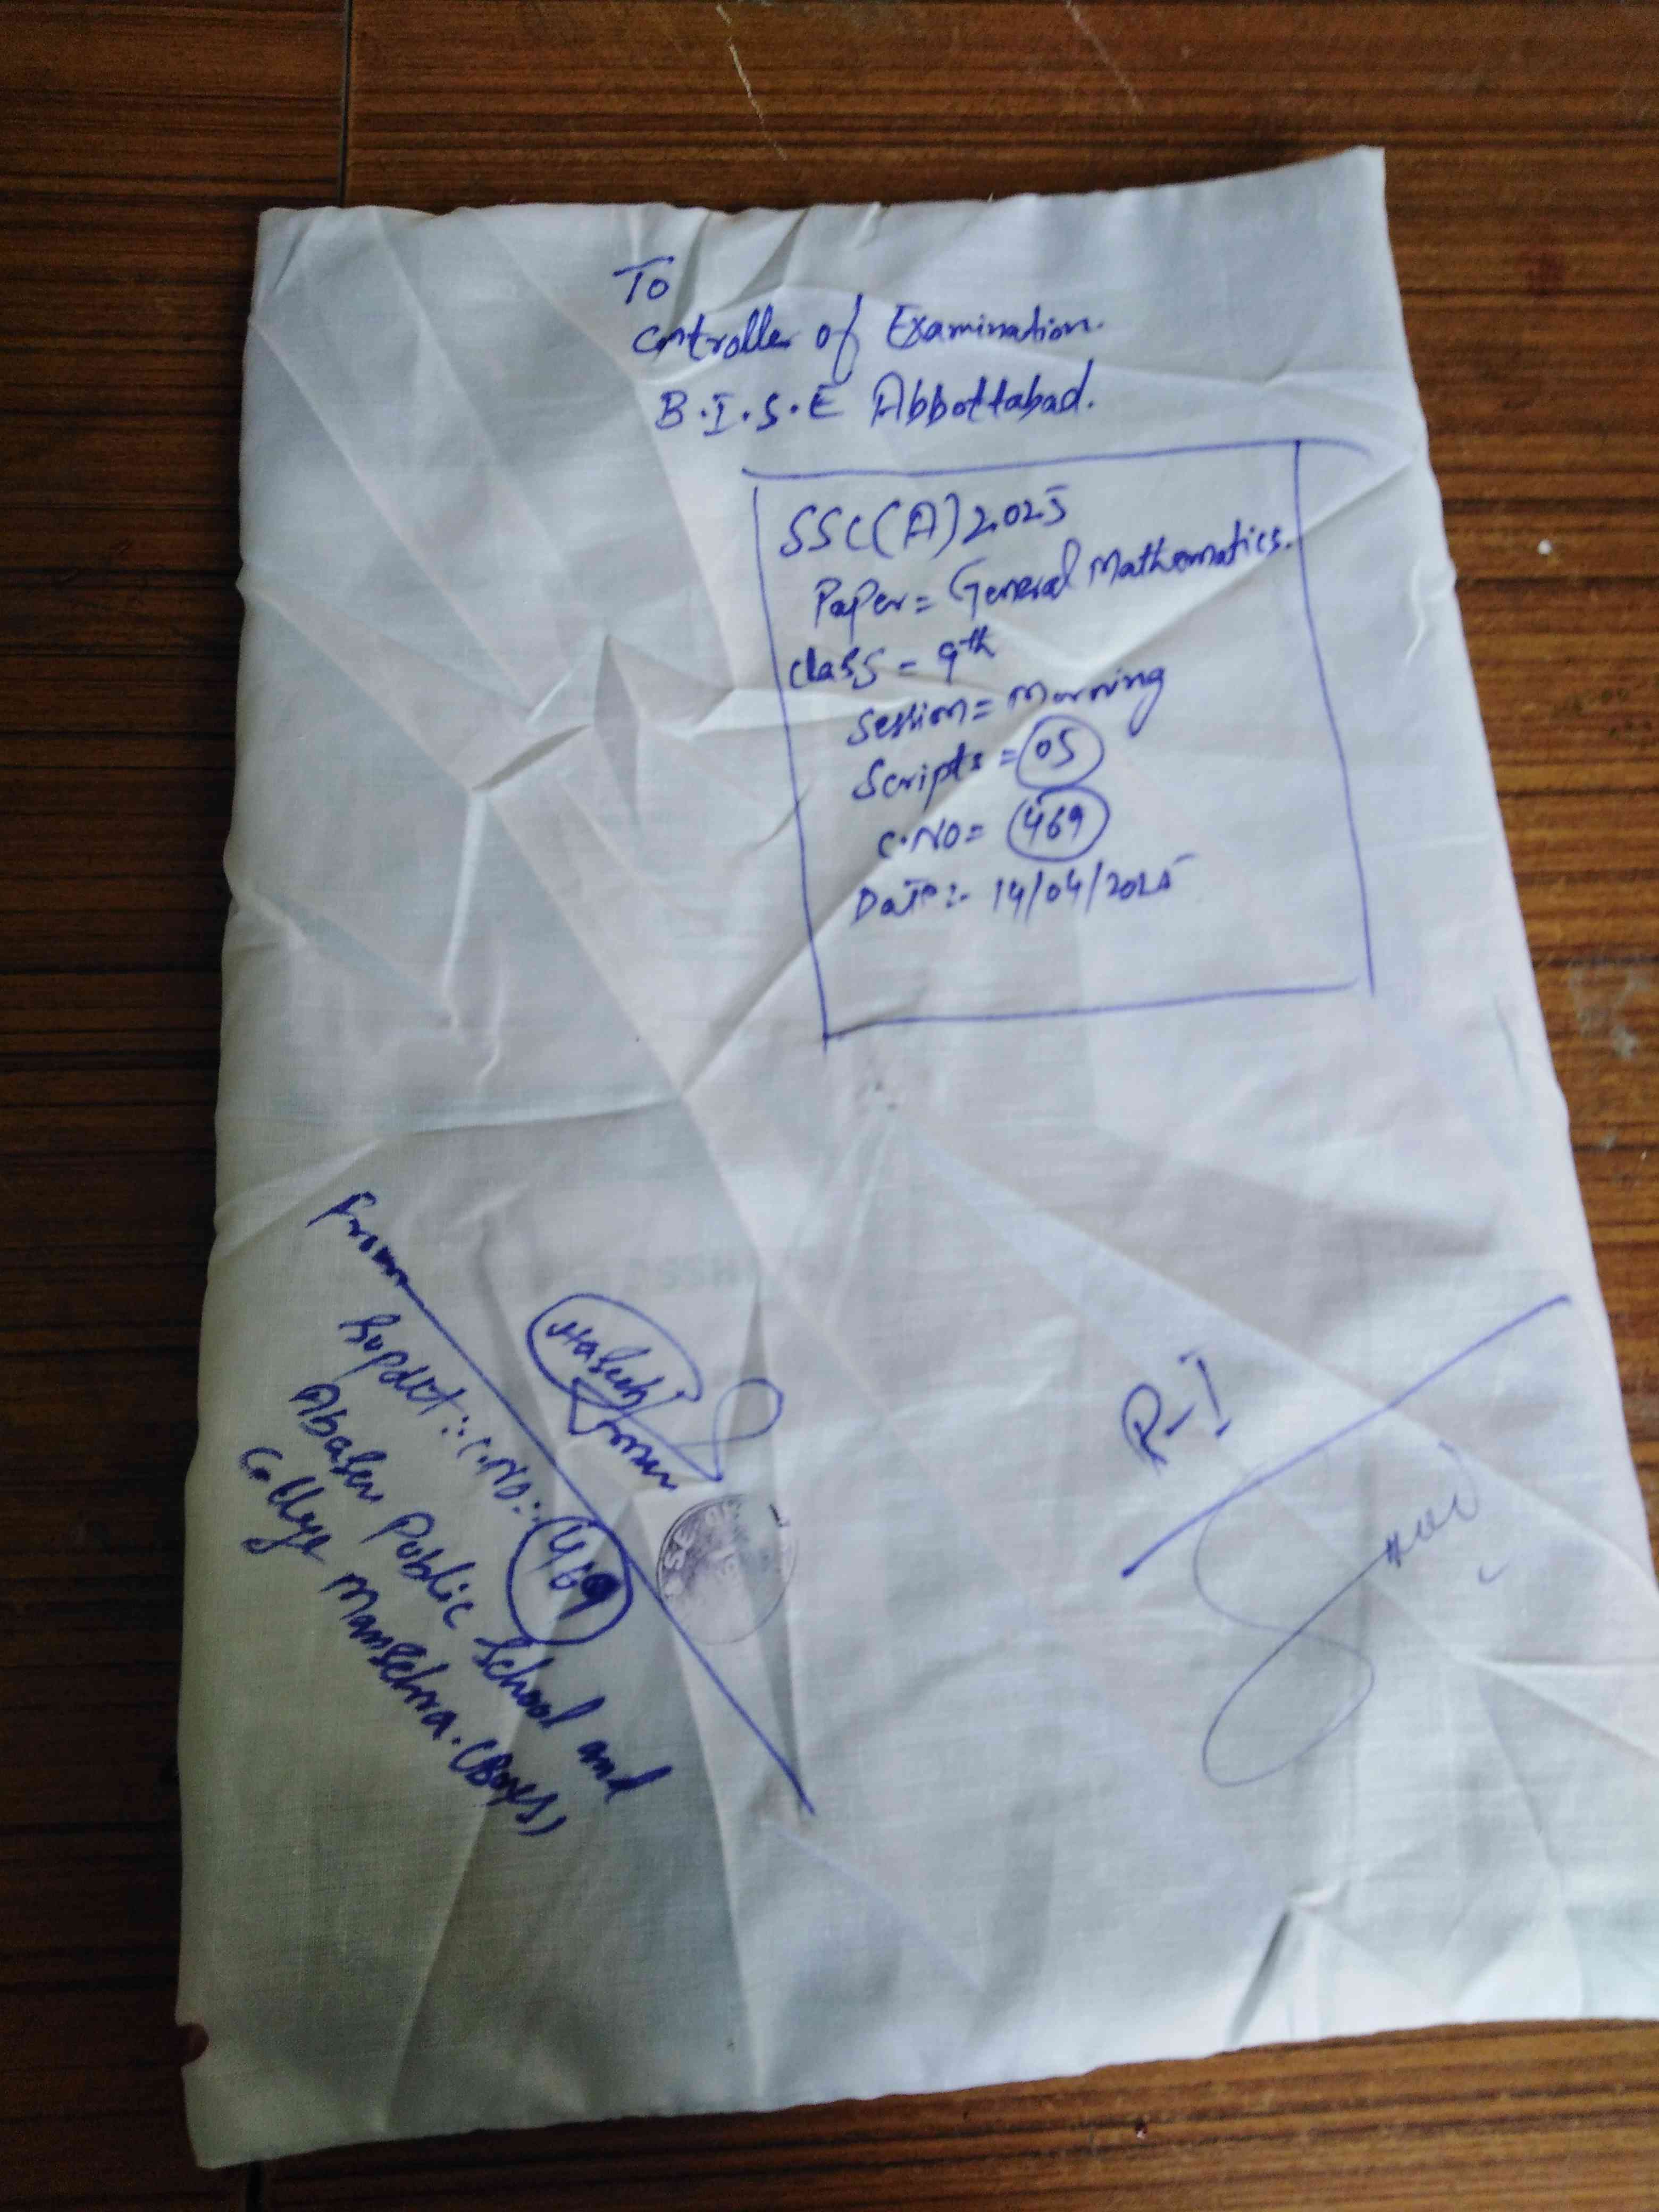 To
Controller of Examination.
B.I.S.E Abbottabad.
SSC(A)2025
Paper = General Mathematics.
Class = 9th
Session = Morning
Scripts = 05
C.NO = 469
Date:- 14/04/2025
From
Supdtt: C.NO:. 469
Abasen Public School and
College Mansehra. (Boys)
R-I